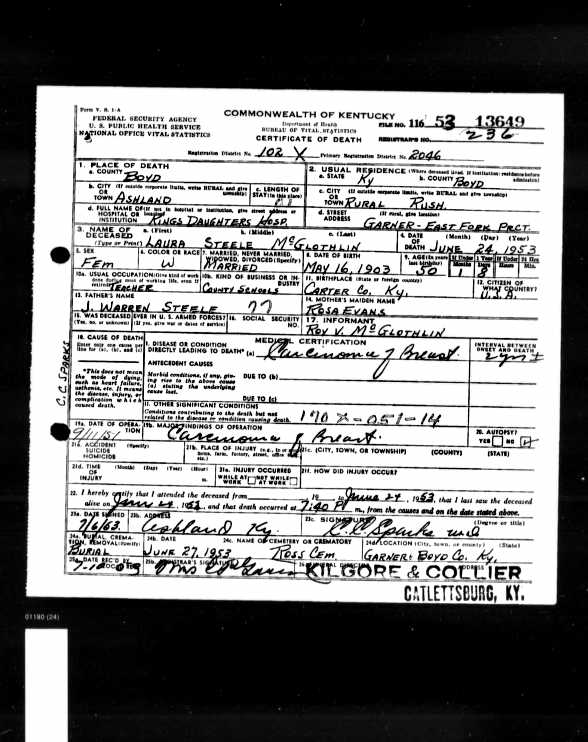 Form V. S. 1-A
FEDERAL SECURITY AGENCY
U. S. PUBLIC HEALTH SERVICE
NATIONAL OFFICE VITAL STATISTICS
COMMONWEALTH OF KENTUCKY
Department of Health
BUREAU OF VITAL STATISTICS
CERTIFICATE OF DEATH
FILE NO. 116 53 13649
REGISTRAR'S NO. 236
Registration District No. 102 X Primary Registration District No. 2046
1. PLACE OF DEATH
a. COUNTY BOYD
2. USUAL RESIDENCE (Where deceased lived. If institution: residence before admission)
a. STATE Ky b. COUNTY BOYD
b. CITY (If outside corporate limits, write RURAL and give township)
TOWN ASHLAND
c. LENGTH OF STAY (in this place)
c. CITY (If outside corporate limits, write RURAL and give township)
TOWN RURAL RUSH.
d. FULL NAME OF (If not in hospital or institution, give street address or location)
HOSPITAL OR INSTITUTION KINGS DAUGHTERS HOSP.
d. STREET ADDRESS (If rural, give location)
GARNER - EAST FORK PRCT.
3. NAME OF DECEASED (Type or Print) a. (First) b. (Middle) c. (Last)
LAURA STEELE McGLOTHLIN
4. DATE OF DEATH (Month) (Day) (Year)
JUNE 24, 1953
5. SEX FEM
6. COLOR OR RACE W
7. MARRIED, NEVER MARRIED, WIDOWED, DIVORCED (Specify) MARRIED
8. DATE OF BIRTH MAY 16, 1903
9. AGE (In years last birthday) 50
If Under 1 Year Months 1 Days 8
If Under 24 Hrs Hours Min.
10a. USUAL OCCUPATION (Give kind of work done during most of working life, even if retired) TEACHER
10b. KIND OF BUSINESS OR INDUSTRY COUNTY SCHOOLS
11. BIRTHPLACE (State or foreign country) CARTER CO. KY.
12. CITIZEN OF WHAT COUNTRY? U.S.A.
13. FATHER'S NAME J. WARREN STEELE
14. MOTHER'S MAIDEN NAME ROSA EVANS
15. WAS DECEASED EVER IN U. S. ARMED FORCES? (Yes, no, or unknown) (If yes, give war or dates of service)
16. SOCIAL SECURITY NO.
17. INFORMANT ROY V. McGLOTHLIN
18. CAUSE OF DEATH
Enter only one cause per line for (a), (b), and (c)
MEDICAL CERTIFICATION
INTERVAL BETWEEN ONSET AND DEATH
I. DISEASE OR CONDITION DIRECTLY LEADING TO DEATH* (a) Carcinoma of Breast.
ANTECEDENT CAUSES
Morbid conditions, if any, giving rise to the above cause (a) stating the underlying cause last.
DUE TO (b)
DUE TO (c)
*This does not mean the mode of dying, such as heart failure, asthenia, etc. It means the disease, injury, or complication which caused death.
C. C. SPARKS
II. OTHER SIGNIFICANT CONDITIONS
Conditions contributing to the death but not related to the disease or condition causing death.
170 X-051-14
19a. DATE OF OPERATION 9/11/51
19b. MAJOR FINDINGS OF OPERATION Carcinoma of Breast.
20. AUTOPSY? YES NO
21a. ACCIDENT SUICIDE HOMICIDE (Specify)
21b. PLACE OF INJURY (e.g., in or about home, farm, factory, street, office bldg., etc.)
21c. (CITY, TOWN, OR TOWNSHIP) (COUNTY) (STATE)
21d. TIME OF INJURY (Month) (Day) (Year) (Hour) m.
21e. INJURY OCCURRED WHILE AT WORK NOT WHILE AT WORK
21f. HOW DID INJURY OCCUR?
22. I hereby certify that I attended the deceased from 19 to June 24, 1953, that I last saw the deceased
alive on June 24, 1953, and that death occurred at 7:40 P m., from the causes and on the date stated above.
23a. DATE SIGNED 7/6/53.
23b. ADDRESS Ashland Ky.
23c. SIGNATURE C. C. Sparks M.D. (Degree or title)
24a. BURIAL, CREMATION, REMOVAL (Specify) BURIAL
24b. DATE JUNE 27, 1953
24c. NAME OF CEMETERY OR CREMATORY ROSS CEM.
24d. LOCATION (City, town, or county) (State) GARNER BOYD CO. KY.
25a. DATE REC'D BY LOCAL REG.
25b. REGISTRAR'S SIGNATURE
ADDRESS
KILGORE & COLLIER
CATLETTSBURG, KY.
01180 (24)